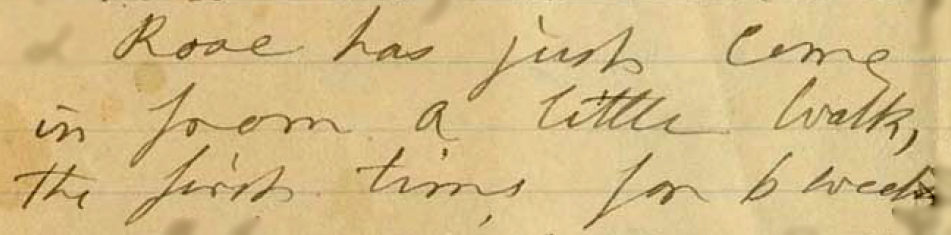 Rose has just come
in from a little walk,
the first time for 6 weeks